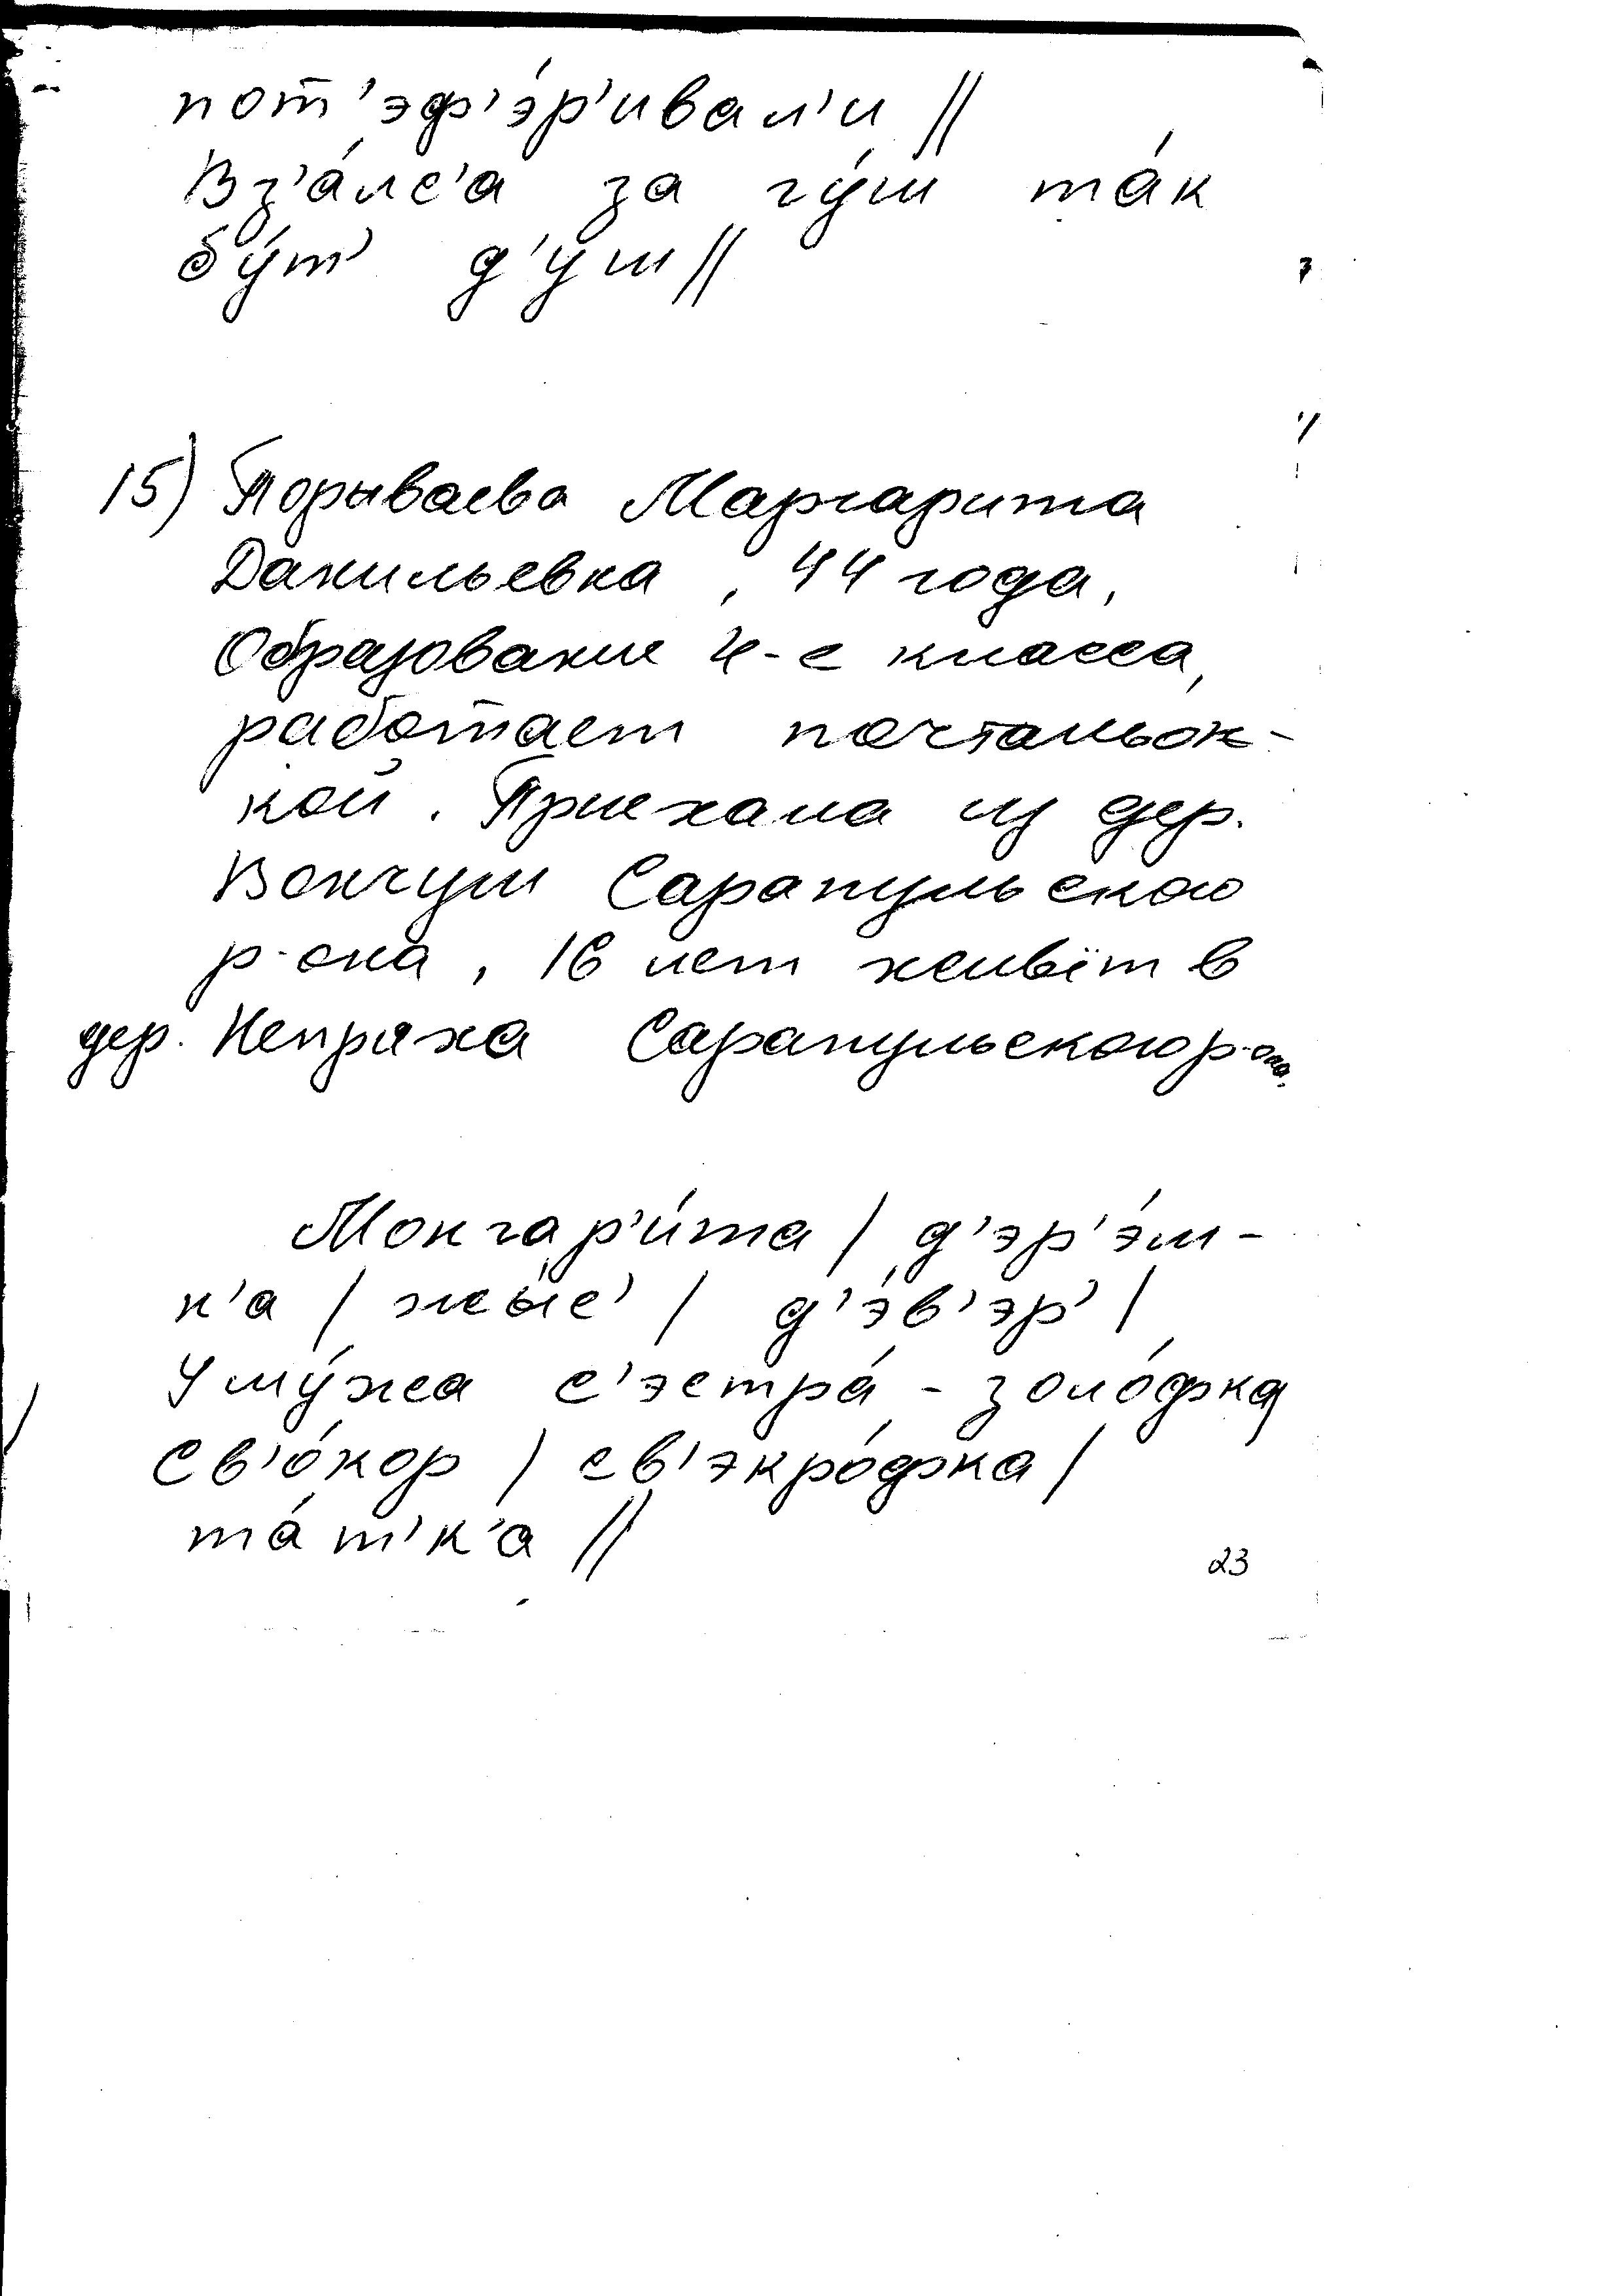 пот'эф'э́р'ивал'и //
Вз'а́лс'а за гу́ш та́к
бу́т' д'у́ш //
15) Порываева Маргарита
Данильевна, 44 года,
Образование 4-е класса,
работает почтальон-
кой. Приехала из дер.
Сарапульского
р-она, 16 лет живёт в
дер. Непряха Сарапульского р-она.
Монгар'и́та / д'эр'э́м-
н'а / жы́с' / д'э́в'эр' /
У му́жа с'эстра́ - золо́фка /
Св'о́кор / св'экро́фка /
та́т'к'а //
23